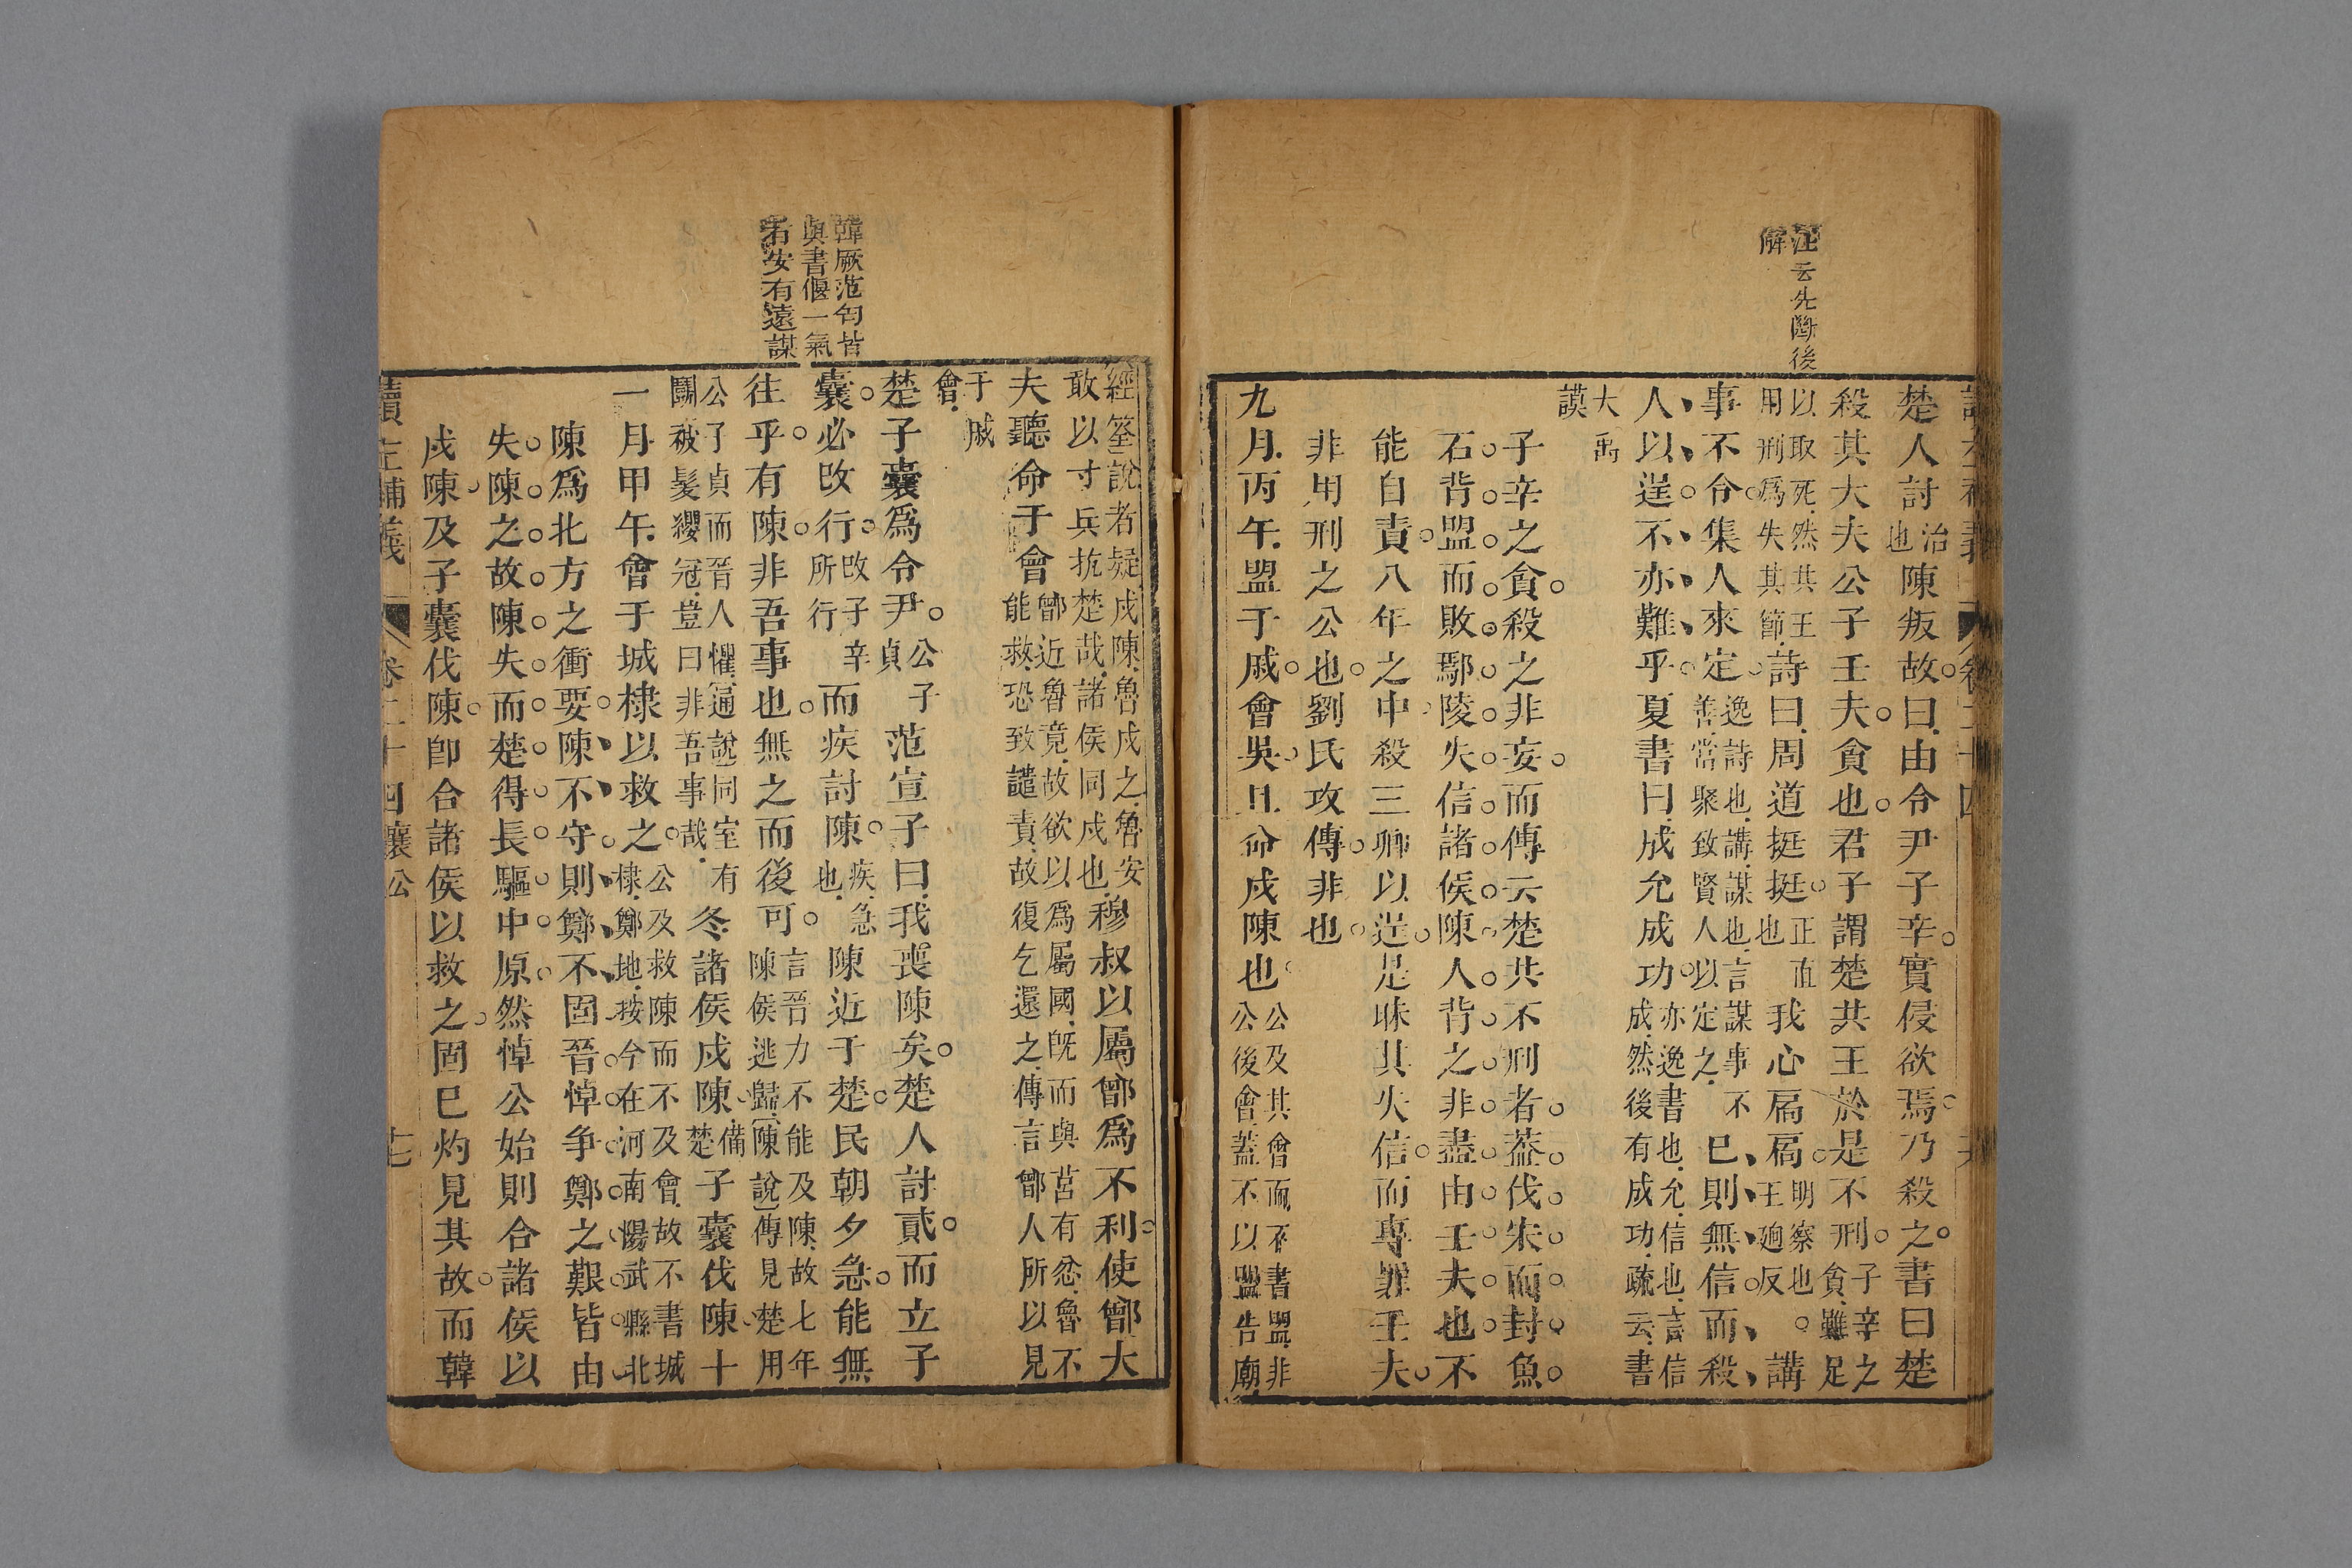 注云先斷後
解
楚人討治也陳叛故曰由令尹子辛實侵欲焉乃殺之書曰楚
殺其大夫公子壬夫貪也君子謂楚共王於是不刑子辛之貪雖足
以取死然共王用刑爲失其節詩曰周道挺挺正直也我心扃扃明察也王逈反講
事不令集人來定逸詩也講謀也言謀事不善當聚致賢人以定之巳則無信而殺
人以逞不亦難乎夏書曰成允成功亦逸書也允信也言信成然後有成功疏云書
大禹謨
子辛之貪殺之非妄而傳云楚共不刑者蓋伐宋而封魚
石背盟而敗鄢陵失信諸侯陳人背之非盡由壬夫也不
能自責八年之中殺三卿以逞是昧其失信而專罪壬夫
非用刑之公也劉氏攻傳非也
九月丙午盟于戚會吳且命戍陳也公及其會而不書盟非公後會蓋不以盟告廟
韓厥范匄皆
與書偃一氣
者安有遠謀
經筌說者疑戍陳魯戍之魯安敢以寸兵抗楚哉諸侯同戍也穆叔以屬鄫爲不利使鄫大
夫聽命于會鄫近魯竟故欲以爲屬國旣而與莒有忿魯不能救恐致譴責故復乞還之傳言鄫人所以見
于戚會
楚子囊爲令尹公子貞范宣子曰我喪陳矣楚人討貳而立子
囊必改行改子辛所行而疾討陳疾急也陳近于楚民朝夕急能無
往乎有陳非吾事也無之而後可言晉力不能及陳故七年陳侯逃歸陳說傳見楚用
公子貞而晉人懼逼說同室有鬬被髮纓冠豈曰非吾事哉冬諸侯戍陳備楚子囊伐陳十
一月甲午會于城棣以救之公及救陳而不及會故不書城棣鄭地按今在河南陽武縣北
陳爲北方之衝要陳不守則鄭不固晉悼爭鄭之艱皆由
失陳之故陳失而楚得長驅中原然悼公始則合諸侯以
戍陳及子囊伐陳卽合諸侯以救之固巳灼見其故而韓
讀左補義 卷二十四襄公 十七